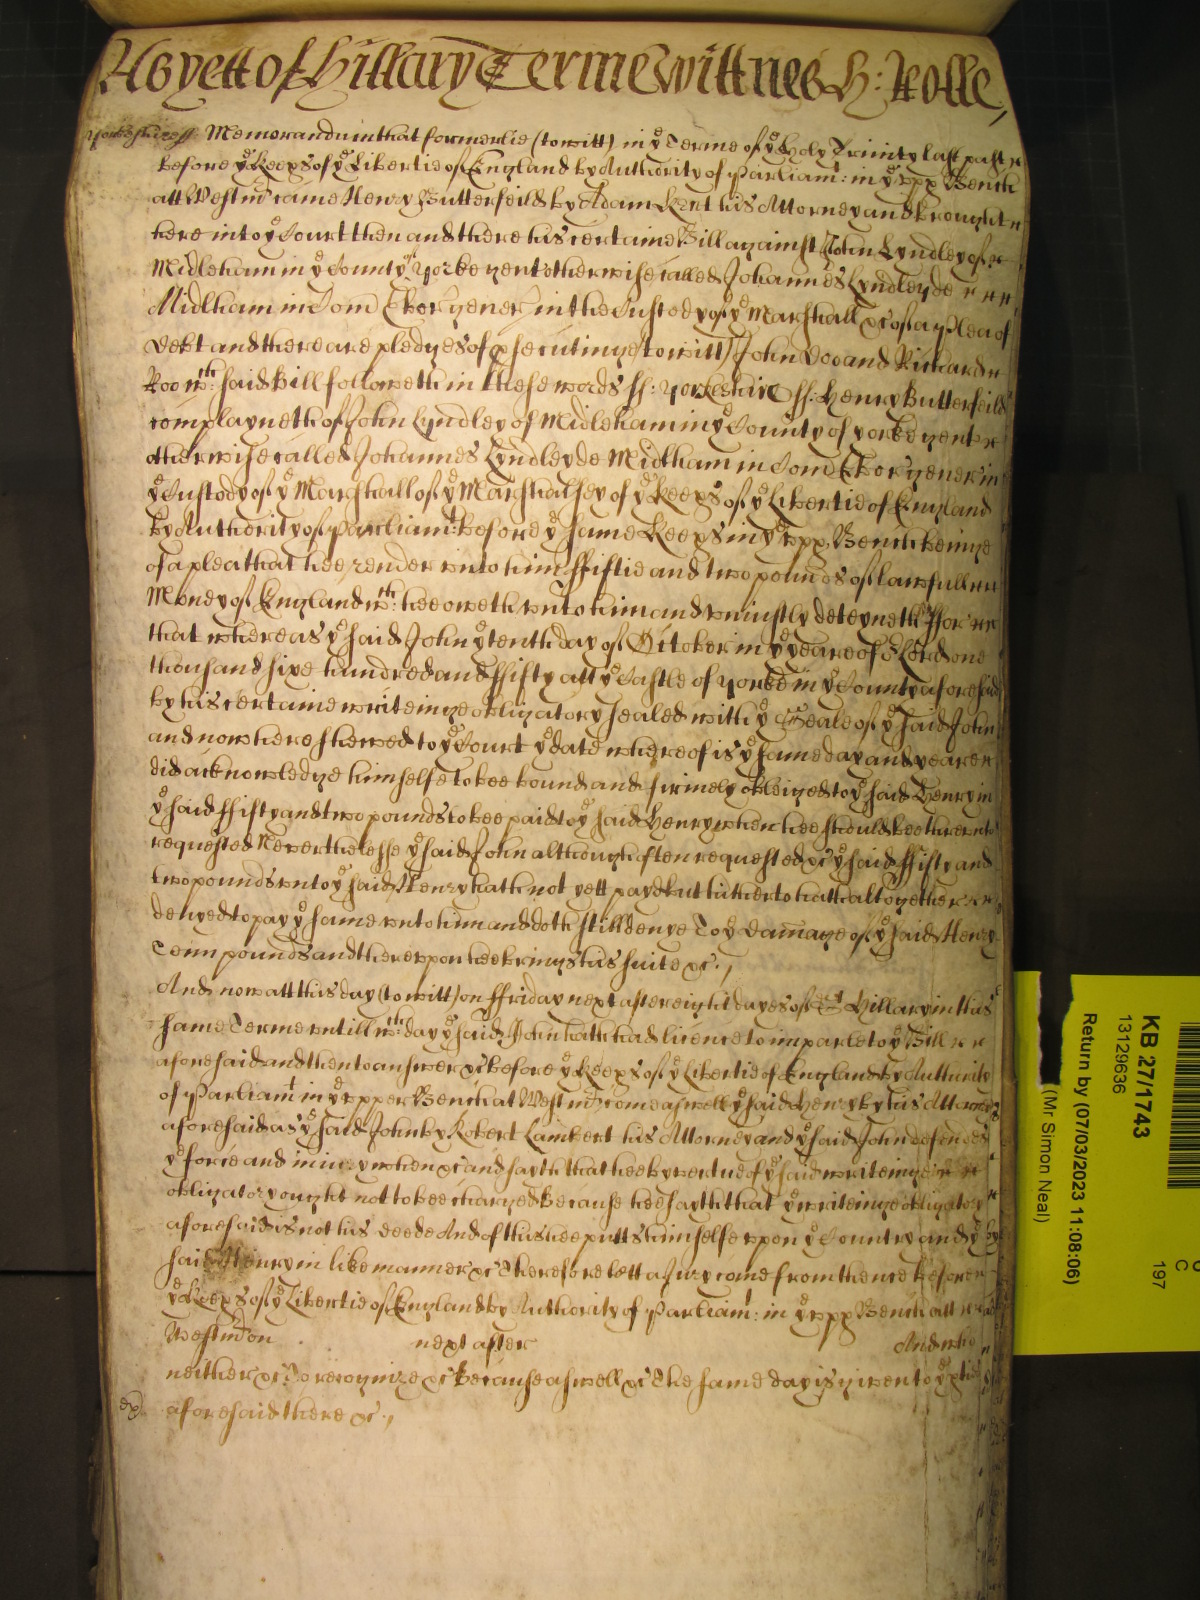 As yett of Hillary Terme Wittnes H: Rolle
Yorkeshire ss: Memorandum that formerlie (to witt) in ye Terme of ye Holy Trinity last past
before ye Keeps of ye Libertie of England by Authority of Parliamt: in ye upp Bench
att Westmr came Henry Butterfeild by Adam Kent his Attorney and brought
here into ye Court then and there his certaine Bill against John Lyndley of
Midleham in ye County of Yorke gent otherwise called Johannes Lyndley de
Midlham in Com Ebor gener in the Custody of ye Marshall &c of a plea of
debt and there are pledges of prsecutinge (to witt) John Doo and Richard
Roo wch: said Bill followeth in these words ss: Yorkeshire ss: Henry Butterfeild
complayneth of John Lyndley of Midleham in ye County of Yorke gent
otherwise called Johannes Lyndley de Midlham in Com Ebor gener in
ye Custody of ye Marshall of ye Marshalsey of ye Keeps of ye Libertie of England
by Authority of Parliamt: before ye same Keeps in ye upp Bench beinge
of a plea that hee render unto him ffiftie and two pounds of lawfull
Money of England wch: hee oweth unto him and uniustly deteyneth ffor
that whereas ye said John ye tenth day of October in ye yeare of or Lord one
thousand sixe hundred and ffifty att ye Castle of Yorke in ye County aforesaid
by his certaine writeinge obligatory sealed with ye Seale of ye said John
and now here shewed to ye Court ye date whereof is ye same day and yeare
did acknowledge himselfe to bee bound and firmely obleiged to ye said Henry in
ye said ffifty and two pounds to bee paid to ye said Henry when hee should bee thereunto
requested Neverthelesse ye said John although often requested &c ye said ffifty and
two pounds unto ye said Henry hath not yett payd but hitherto hath altogether
denyed to pay ye same unto him and doth still denye To ye damage of ye said Henry
Tenn pounds and thereupon hee brings his suite &c.,
And now att this day (to witt) on ffriday next after eight dayes of St Hillary in this
same Terme untill wch: day ye said John hath had licence to imparle to ye Bill
aforesaid and then to answer &c before ye Keeps of ye Libertie of England by Authority
of Parliamt in ye upper Bench at Westmr come aswell ye said Henry by his Attorney
aforesaid as ye said John by Robert Lambert his Attorney and ye said John defendes
ye force and iniury when &c and sayth that hee by vertue of ye said writeinge
obligatory ought not to bee charged Because hee sayth that ye writeinge obligatory
aforesaid is not his deede And of this hee putts himselfe upon ye Country and ye
said Henry in like manner &c Therefore lett a Jury come from thence before
ye Keeps of ye Libertie of England by Authority of Parliamt: in ye upp Bench att
Westmr on next after And who
neither &c To recognize &c Because aswell &c The same day is given to ye pties
aforesaid there &c.,
KB 27/1743
13129636
Return by (07/03/2023 11:08:06)
(Mr Simon Neal)
C
197